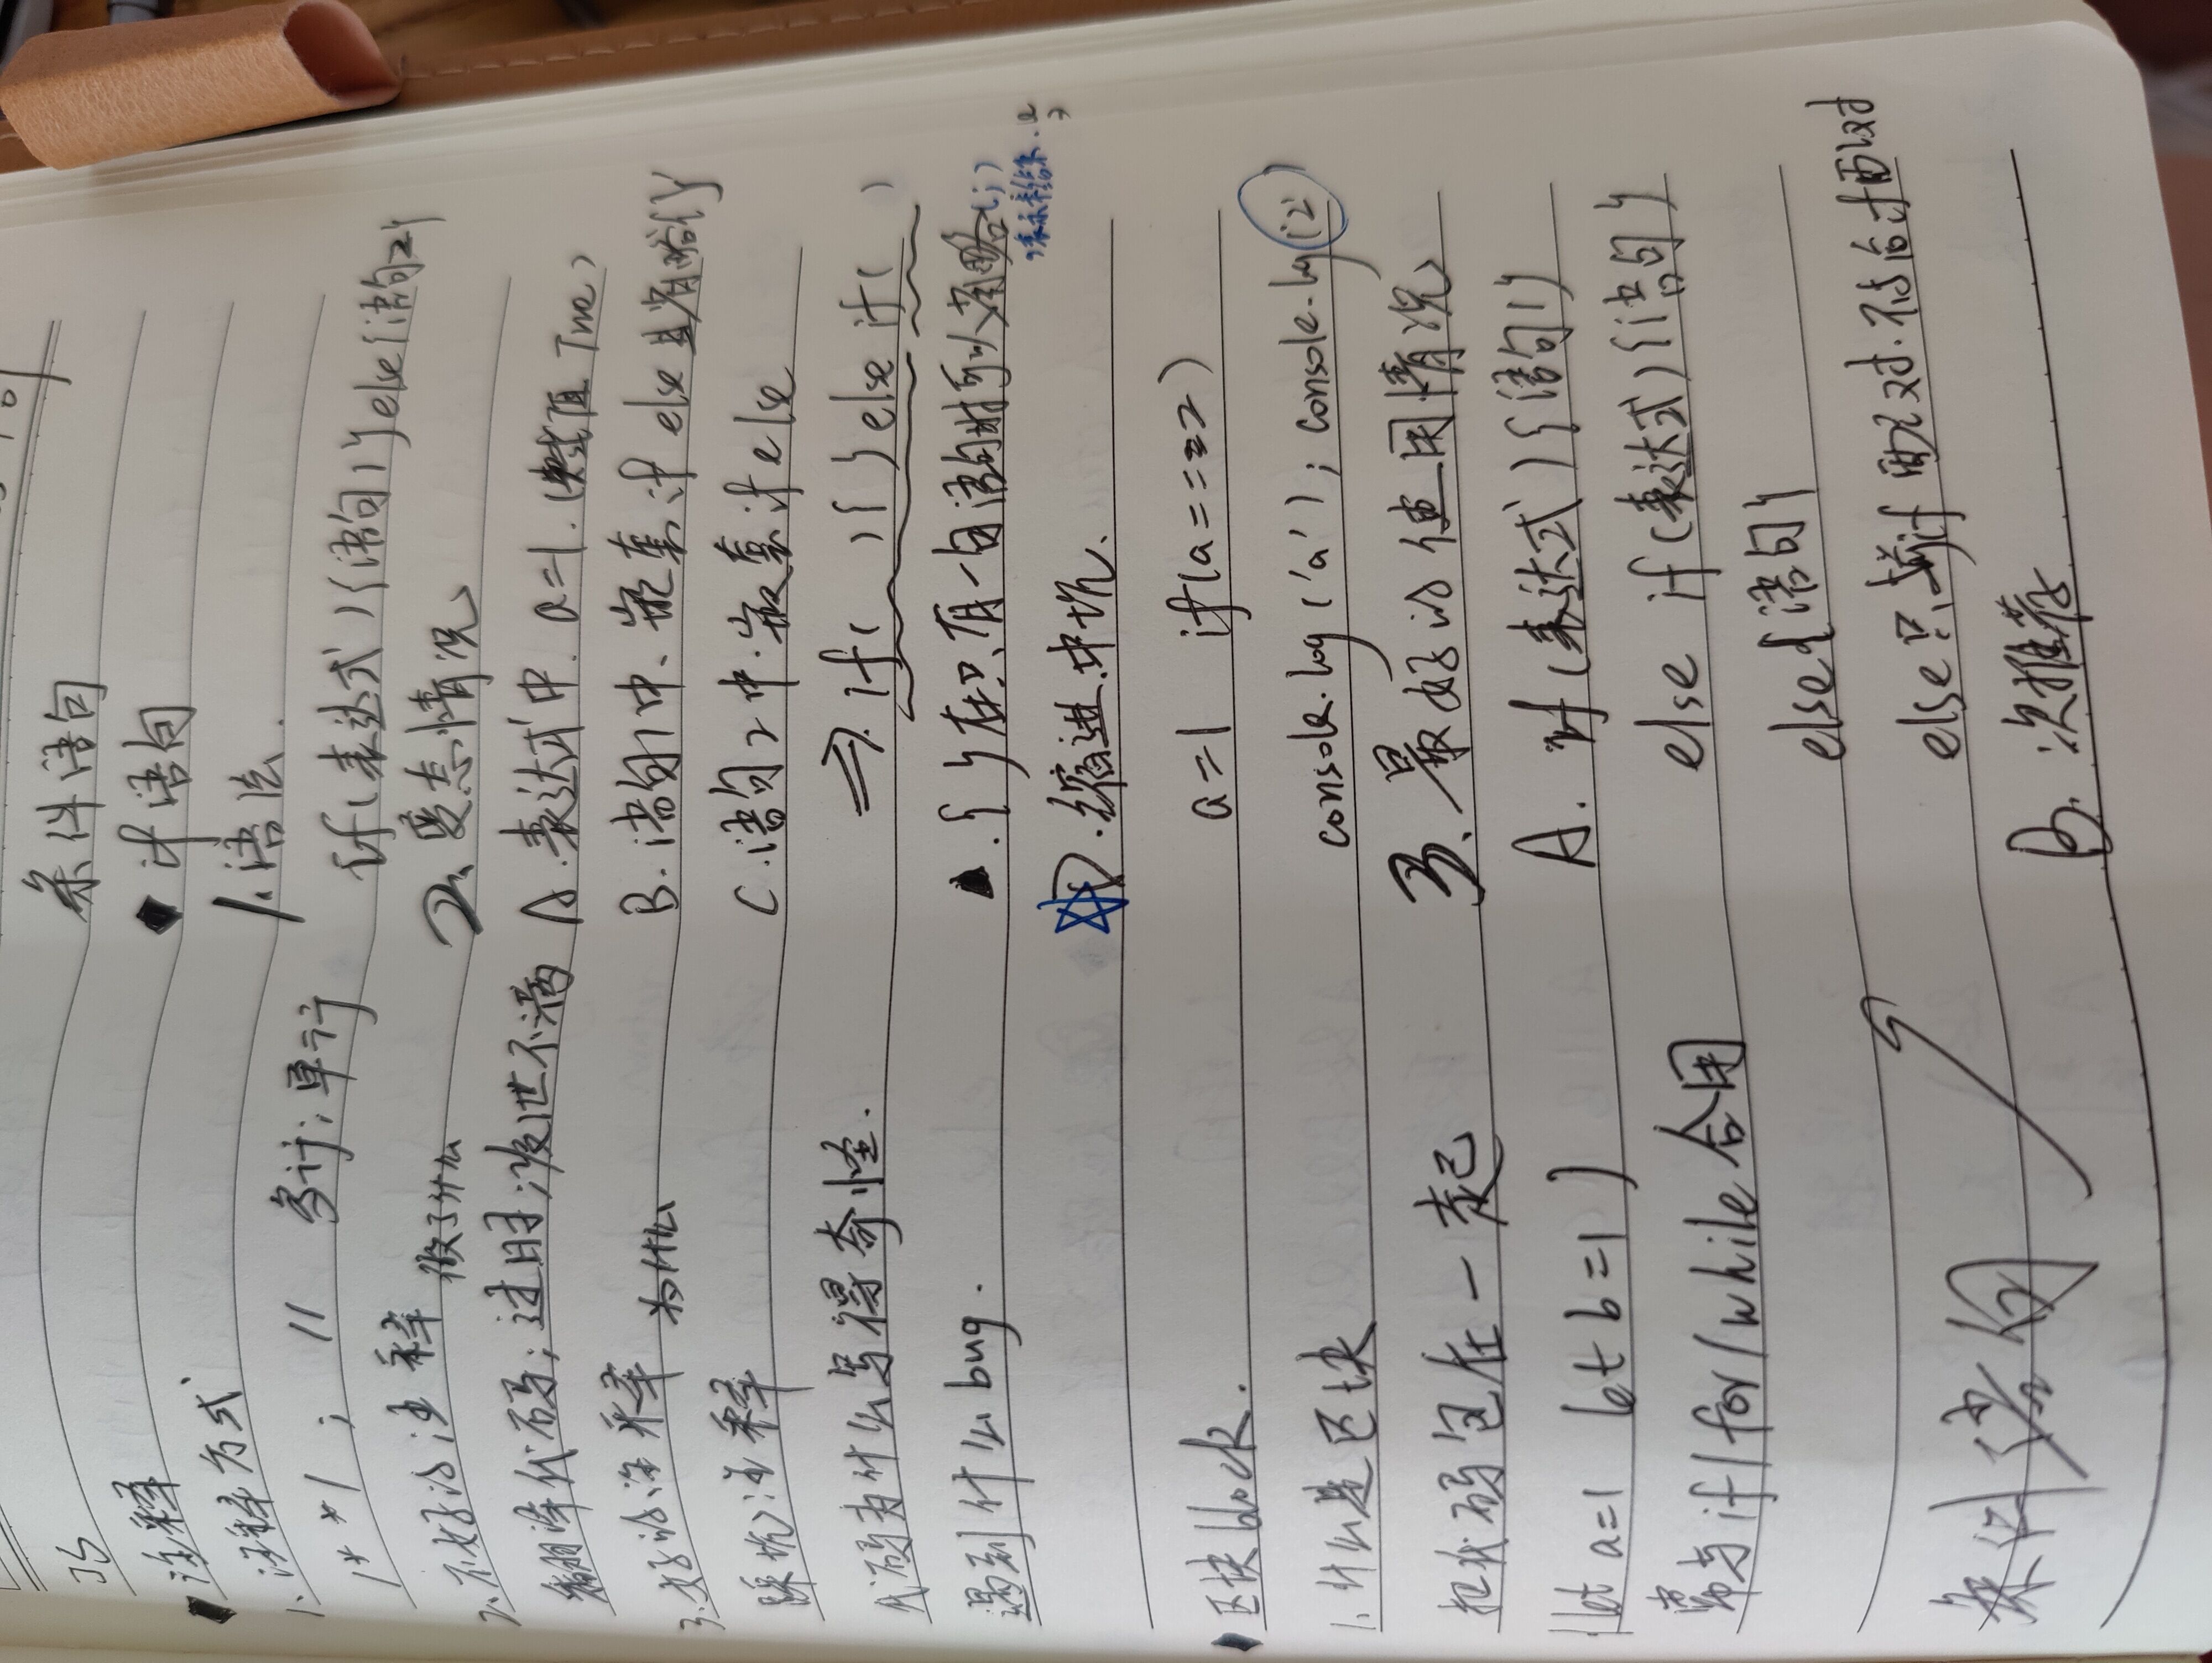 JS
◆ 注释
1、注释方式
/* */ ; // 多行;单行
2、不好的注释 做了什么
翻译代码;过时;发泄不满
3、好的注释 为什么
踩坑注释
代码为什么写得奇怪.
遇到什么bug.
◆ 区块block.
1、什么是区块
把代码包在一起
{let a=1 let b=1 }
常与if/for/while合用
条件语句
条件语句
◆ if语句
1、语法.
if(表达式){语句1}else{语句2}
2、变态情况
A.表达式中. a=1.(赋值 True)
B.语句1中、嵌套if else且省略{}
C.语句2中.嵌套if else
⇒. if( ){ }else if( )
▲.{ }在只有一句语句时可以省略(;)
,表示未结束.
D.缩进中坑.
a=1 if(a===2)
console.log('a'); console.log(2)
3、最好的使用情况
A. if(表达式){语句1}
else if(表达式){语句}
else{语句}
else只与前if配对.不与后if配对
B. 次推荐